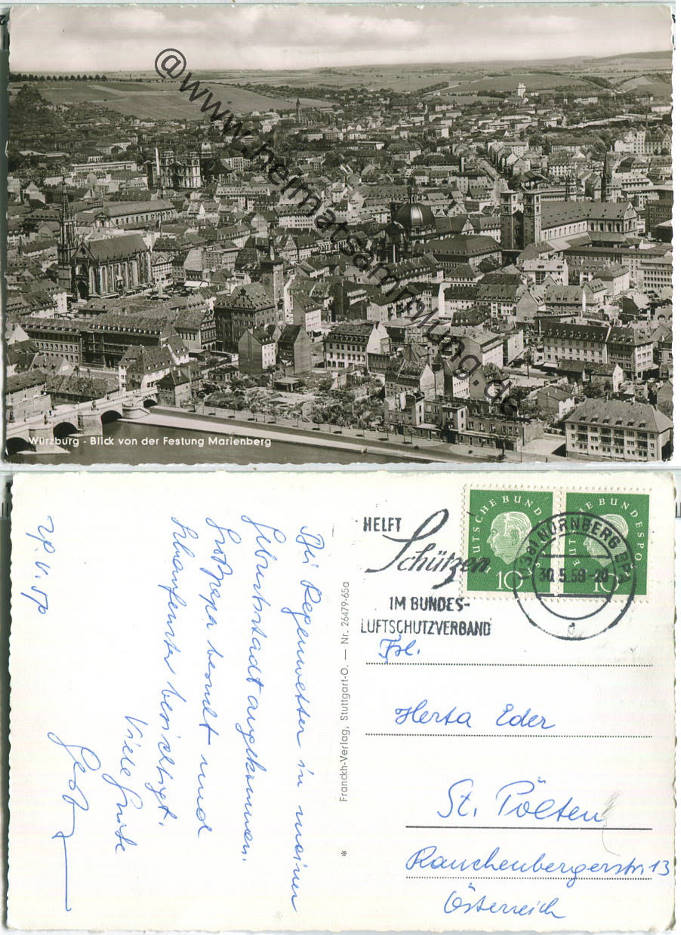 @www.heimatsammlung.de
Würzburg - Blick von der Festung Marienberg
HELFT
Schützen
IM BUNDES-
LUFTSCHUTZVERBAND
DEUTSCHE BUNDESPOST
10
DEUTSCHE BUNDESPOST
10
NÜRNBERG
30.5.59-20
Frl.
Herta Eder
St. Pölten
Rauchenbergerstr. 13
Österreich
Franckh-Verlag, Stuttgart-O. — Nr. 26479-65a
*
Bei Regenwetter in meiner
Geburtsstadt angekommen.
Großpapa besucht und
Schaufenster besichtigt.
Viele Grüße